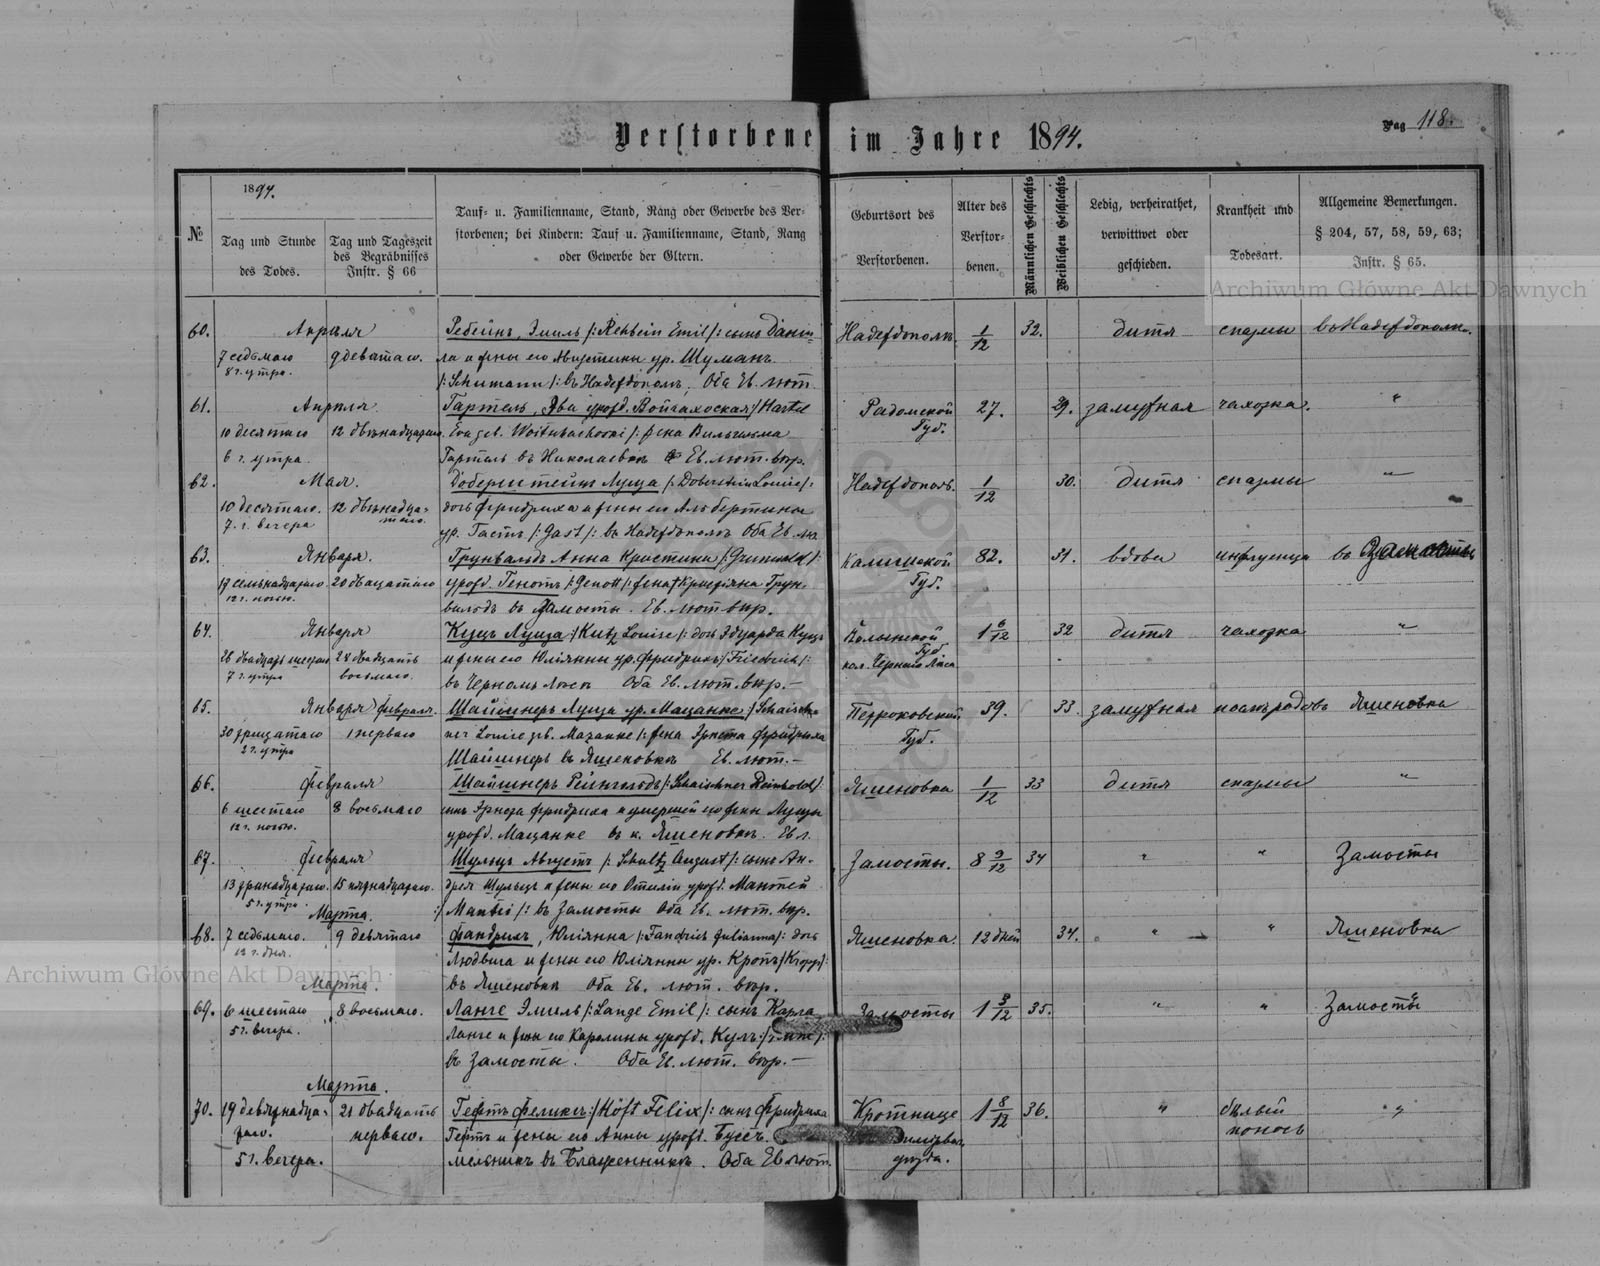 Verstorbene im Jahre 1894.
Pag 118.
№
1894.
Tag und Stunde
des Todes.
Tag und Tageszeit
des Begräbnisses
Instr. § 66
Tauf- u. Familienname, Stand, Rang oder Gewerbe des Ver-
storbenen; bei Kindern: Tauf u. Familienname, Stand, Rang
oder Gewerbe der Eltern.
Geburtsort des
Verstorbenen.
Alter des
Verstor-
benen.
Männlichen Geschlechts
Weiblichen Geschlechts
Ledig, verheirathet,
verwittwet oder
geschieden.
Krankheit und
Todesart.
Allgemeine Bemerkungen.
§ 204, 57, 58, 59, 63;
Instr. § 65.
Archiwum Główne Akt Dawnych
60. Апрѣля Ребейнъ, Эмиль /: Rehbein Emil /: сынъ Дани- 1/12 32. дитя спазмы
7 седьмаго 9 девятаго. ла и жены его Августины ур. Шуманъ
8 г. утра. /: Schumann /: въ Оба Ев. лют.
61. Апрѣля Гартель, Эва урожд. /: Hartel Радомской 27. 29. замужная чахотка. "
10 десятаго 12 двѣнадцатаго. Eva geb. /: жена Вильгельма Губ.
6 г. утра Гартель въ Николаевкѣ Ев. лют. вѣр.
62. Мая. Доберштейнъ Луиза /: Doberstein Louise /: 1/12 30. дитя спазмы "
10 десятаго. 12 двѣнадца- дочь Фридриха и жены его Альбертины
7 г. вечера таго. ур. Гастъ /: Gast /: въ Оба Ев. лю
63. Января. Грунвальдъ Анна Кристина /: Grunwald /: Калишской 82. 31. вдова инфлуенца въ Замосты
17 семьнадцатаго. 20 двацатаго урожд. Генотъ /: Genott /: жена Грун- Губ.
12 г. ночью. вальдъ въ Замосты. Ев. лют вѣр.
64. Января Куцъ Луиза /: Kutz Louise /: дочь Эдуарда Куцъ Волынской 1 6/12 32 дитя чахотка "
26 двадцать шестаго 28 двадцать и жены его Юліянны ур. Фридрихъ /: Friedrich /: Губ.
7 г. утра восьмаго. въ Черномъ Лѣсѣ Оба Ев. лют. вѣр. — кол. Черный Лѣсъ
65. Января февраля. Шайшнеръ Луиза ур. Мацанке /: Schaisch- 39. 33. замужная Яшеновка
30 тридцатаго 1 перваго ner Louise geb. Mazanke /: жена Эрнста Фридриха Губ.
2 г. утра Шайшнеръ въ Яшеновкѣ Ев. лют. —
66. февраля Шайшнеръ Рейнгольдъ /: Schaischner Reinhold /: Яшеновка 1/12 33 дитя спазмы "
6 шестаго 8 восьмаго сынъ Эрнста Фридриха и умершей его жены Луизы
12 г. ночью. урожд. Мацанке въ к. Яшеновкѣ. Ев л.
67. февраля Шульцъ Августъ /: Schultz August /: сынъ Ан- Замосты. 8 9/12 34 " " Замосты
13 тринадцатаго. 15 пятнадцатаго. дрея Шульцъ и жены его Отиліи урожд. Мантей
5 г. утра /: въ Замосты Оба Ев. лют. вѣр.
Марта.
68. 7 седьмаго. 9 девятаго Фандрихъ, Юліянна /: Fandrich Julianna /: дочь Яшеновка. 12 дней 34. " " Яшеновка
12 г. дня. Людвига и жены его Юліянны ур. Кропъ /: Kropp /:
въ Яшеновкѣ Оба Ев. лют. вѣр.
Archiwum Główne Akt Dawnych
Марта.
69. 6 шестаго 8 восьмаго. Ланге Эмиль /: Lange Emil /: сынъ Карла Замосты 1 3/12 35. " " Замосты
5 г. вечера. Ланге и жены его Каролины урожд.
въ Замосты. Оба Ев. лют. вѣр. —
Марта.
70. 19 девятнадца- 21 двадцать Гефтъ Феликсъ /: Höft Felix /: сынъ Фридриха 1 8/12 36. " бѣлый "
таго. перваго. Гефтъ и жены его Анны урожд. Буссъ. поносъ
5 г. вечера. мельникъ въ Оба Ев лют. уѣзда.